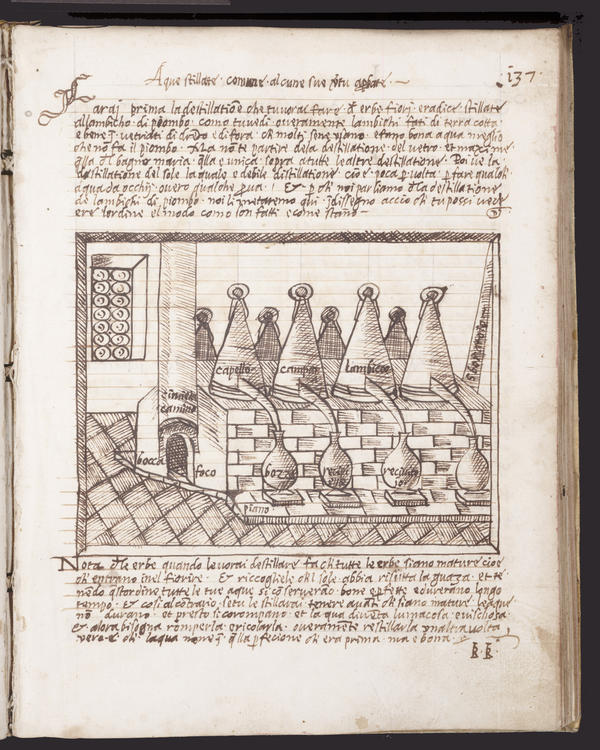 Aque stillate comune alcune sue v̄tu app̄ate
137
Farai prima la destillatiōe che tu vorai fare d̄ erbe fiori eradice stillate
al lambicho di piombo como tu vedi overamente lambichi fati di terra cotta
e bene vetriati di drēto e di fora ch molti sene usano e fano bona aqua meglio
che nō fa il piombo Ma nō te partire dela destillatione del vetro et maxime
q̄lla d̄l bagno maria q̄lla e unica sopra a tutte le altre destillatione Poi vie la
destillatione del sole la quale e debile distillatione cioe poca p̱ volta p̱ fare qualch
aqua da occhij overo qualche Et p̱ ch noi parliamo d̄la destillatione
de lambichi di piombo noi li metaremo qui j disegno accio ch tu possi vede
ere lordine el modo como son fatti e come stano
capello
campana
lambicco
camino
bocca
foco
bozza
piano
Nota d̄le erbe quando le vorai destillare fa ch tutte le erbe siano mature cioe
ch entrano inel fiorire Et riccogliele ch l sole abbia risciutta la guaza et te
nēdo q̄sto ordine tutte le tue aque si cōserverāo bone e pfette e durerano longo
tempo et cosi al cōtrario se tu le stillarai tenere avāti ch siano mature le aque
nō durano et presto si corompano et la qua divēta lumacosa e vischiosa
et alora bisogna romperla e ricolarla overamēte restillarla unaltra volta
vero e ch laqua none q̄lla pfecione ch era prima ma e bona